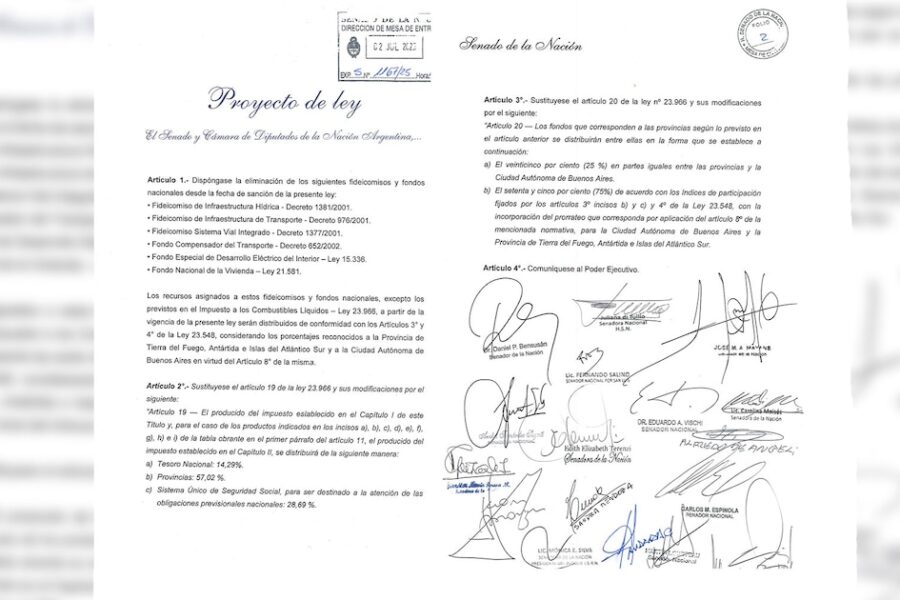 DIRECCION DE MESA DE ENTR
02 JUL 2025
EXP. S Nº 1167/25 Hora
Proyecto de ley
El Senado y Cámara de Diputados de la Nación Argentina,...
Artículo 1.- Dispóngase la eliminación de los siguientes fideicomisos y fondos
nacionales desde la fecha de sanción de la presente ley:
• Fideicomiso de Infraestructura Hídrica - Decreto 1381/2001.
• Fideicomiso de Infraestructura de Transporte - Decreto 976/2001.
• Fideicomiso Sistema Vial Integrado - Decreto 1377/2001.
• Fondo Compensador del Transporte - Decreto 652/2002.
• Fondo Especial de Desarrollo Eléctrico del Interior – Ley 15.336.
• Fondo Nacional de la Vivienda – Ley 21.581.
Los recursos asignados a estos fideicomisos y fondos nacionales, excepto los
previstos en el Impuesto a los Combustibles Líquidos – Ley 23.966, a partir de la
vigencia de la presente ley serán distribuidos de conformidad con los Artículos 3° y
4° de la Ley 23.548, considerando los porcentajes reconocidos a la Provincia de
Tierra del Fuego, Antártida e Islas del Atlántico Sur y a la Ciudad Autónoma de
Buenos Aires en virtud del Artículo 8° de la misma.
Artículo 2°.- Sustituyese el artículo 19 de la ley 23.966 y sus modificaciones por el
siguiente:
"Artículo 19 — El producido del impuesto establecido en el Capítulo I de este
Título y, para el caso de los productos indicados en los incisos a), b), c), d), e), f),
g), h) e i) de la tabla obrante en el primer párrafo del artículo 11, el producido del
impuesto establecido en el Capítulo II, se distribuirá de la siguiente manera:
a) Tesoro Nacional: 14,29%.
b) Provincias: 57,02 %.
c) Sistema Único de Seguridad Social, para ser destinado a la atención de las
obligaciones previsionales nacionales: 28,69 %.
Senado de la Nación
H. SENADO DE LA NACION
FOLIO
2
Artículo 3°.- Sustituyese el artículo 20 de la ley nº 23.966 y sus modificaciones
por el siguiente:
"Artículo 20 — Los fondos que corresponden a las provincias según lo previsto en
el artículo anterior se distribuirán entre ellas en la forma que se establece a
continuación:
a) El veinticinco por ciento (25 %) en partes iguales entre las provincias y la
Ciudad Autónoma de Buenos Aires.
b) El setenta y cinco por ciento (75%) de acuerdo con los Indices de participación
fijados por los artículos 3° incisos b) y c) y 4° de la Ley 23.548, con la
incorporación del prorrateo que corresponda por aplicación del artículo 8° de la
mencionada normativa, para la Ciudad Autónoma de Buenos Aires y la
Provincia de Tierra del Fuego, Antártida e Islas del Atlántico Sur.
Artículo 4°.- Comuníquese al Poder Ejecutivo.
Dr. Daniel P. Bensusán
Senador de la Nación
Juliana di Tullio
Senadora Nacional
H.S.N.
JOSE M. A MAYANS
Lic. FERNANDO SALINO
SENADOR NACIONAL POR SAN LUIS
Lic. Carolina Moisés
Senadora de la Nación
DR. EDUARDO A. VISCHI
SENADOR NACIONAL
ALFREDO DE ANGELI
Edith Elizabeth Terenzi
Senadora de la Nación
SANDRA MENDOZA
CARLOS M. ESPINOLA
SENADOR NACIONAL
LIC. MÓNICA E. SILVA
SENADORA DE LA NACIÓN
Senador Nacional